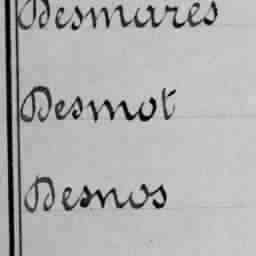 Desmares
Desmot
Desnos